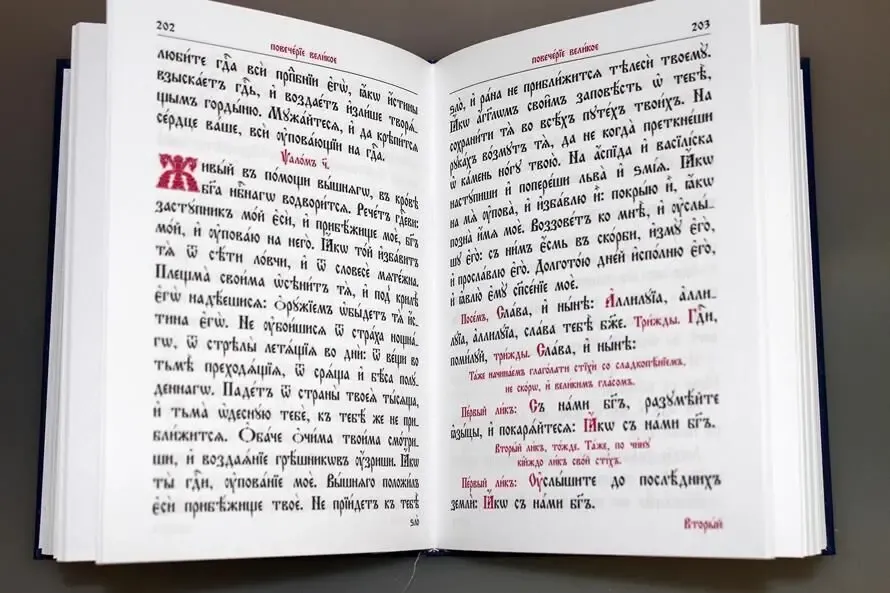 202
повече́рїе вели́кое
люби́те гдⷭ҇а всѝ прпⷣбнїи є҆гѡ̀, ꙗ҆́кѡ и҆́стины
взыска́етъ гдⷭ҇ь, и҆ воздае́тъ и҆зли́ше творѧ́_
щымъ горды́ню. Мꙋжа́йтесѧ, и҆ да крѣпи́тсѧ
се́рдце ва́ше, всѝ ᲂу҆пова́ющїи на гдⷭ҇а.
Ѱало́мъ ч҃.
Живы́й въ по́мощи вы́шнѧгѡ, въ кро́вѣ
бг҃а нбⷭ҇нагѡ водвори́тсѧ. Рече́тъ гдⷭ҇еви:
застꙋ́пникъ мо́й є҆сѝ, и҆ прибѣ́жище моѐ, бг҃ъ
мо́й, и҆ ᲂу҆пова́ю на него̀. Ꙗ҆́кѡ то́й и҆зба́витъ
тѧ̀ ѿ сѣ́ти ло́вчи, и҆ ѿ словесѐ мѧте́жна.
Плещма̀ свои́ма ѡ҆сѣни́тъ тѧ̀, и҆ под̾ крилѣ̑
є҆гѡ̀ надѣ́ешисѧ: Ѻ҆рꙋ́жїемъ ѡ҆бы́детъ тѧ̀ и҆́с_
тина є҆гѡ̀. Не ᲂу҆бои́шисѧ ѿ стра́ха нощна́_
гѡ, ѿ стрѣлы̀ летѧ́щїѧ во днѝ: ѿ ве́щи во
тьмѣ̀ преходѧ́щїѧ, ѿ срѧ́ща и҆ бѣ́са полꙋ́_
деннагѡ. Паде́тъ ѿ страны̀ твоеѧ̀ ты́сѧща,
и҆ тьма̀ ѡ҆деснꙋ́ю тебє̀, къ тебѣ́ же не при_
бли́житсѧ. Ѻ҆ба́че ѻ҆чи́ма твои́ма смо́три_
ши, и҆ воздаѧ́нїе грѣ́шникѡвъ ᲂу҆́зриши. Ꙗ҆́кѡ
ты̀ гдⷭ҇и, ᲂу҆пова́нїе моѐ. Вы́шнѧго положи́лъ
є҆сѝ прибѣ́жище твоѐ. Не прїи́детъ къ тебѣ̀
ѕло̀
203
повече́рїе вели́кое
ѕло̀, и҆ ра́на не прибли́житсѧ тѣлесѝ твоемꙋ̀.
Ꙗ҆́кѡ а҆́гг҃лѡмъ свои̑мъ заповѣ́сть ѡ҆ тебѣ̀,
сохрани́ти тѧ̀ во всѣ́хъ пꙋте́хъ твои́хъ. На
рꙋка́хъ во́змꙋтъ тѧ̀, да не когда̀ преткне́ши
ѡ҆ ка́мень но́гꙋ твою̀. На а҆́спїда и҆ васїлі́ска
настꙋ́пиши и҆ попере́ши льва̀ и҆ ѕмі́ѧ. Ꙗ҆́кѡ
на мѧ̀ ᲂу҆пова̀, и҆ и҆зба́влю и҆̀: покры́ю и҆̀, ꙗ҆́кѡ
позна̀ и҆́мѧ моѐ. Воззове́тъ ко мнѣ̀, и҆ ᲂу҆слы́_
шꙋ є҆го̀: съ ни́мъ є҆́смь въ ско́рби, и҆змꙋ̀ є҆го̀,
и҆ просла́влю є҆го̀. Долгото́ю дні́й и҆спо́лню є҆го̀,
и҆ ꙗ҆влю̀ є҆мꙋ̀ спⷭ҇нїе моѐ.
Посе́мъ, Сла́ва, и҆ ны́нѣ: А҆ллилꙋ́їа, а҆лли_
лꙋ́їа, а҆ллилꙋ́їа, сла́ва тебѣ̀ бж҃е. Три́жды. Гдⷭ҇и,
поми́лꙋй, три́жды. Сла́ва, и҆ ны́нѣ:
Та́же начина́емъ глаго́лати стїхѝ со сладкопѣ́нїемъ,
не ско́рѡ, и҆ вели́кимъ гла́сомъ.
Пе́рвый ли́къ: Съ на́ми бг҃ъ, разꙋмѣ́йте
ꙗ҆зы́цы, и҆ покарѧ́йтесѧ: Ꙗ҆́кѡ съ на́ми бг҃ъ.
Вторы́й ли́къ, то́жде. Та́же, по чи́нꙋ
кі́йждо ли́къ сво́й сті́хъ.
Пе́рвый ли́къ: Оу҆слы́шите до послѣ́днихъ
землѝ: Ꙗ҆́кѡ съ на́ми бг҃ъ.
Вторы́й